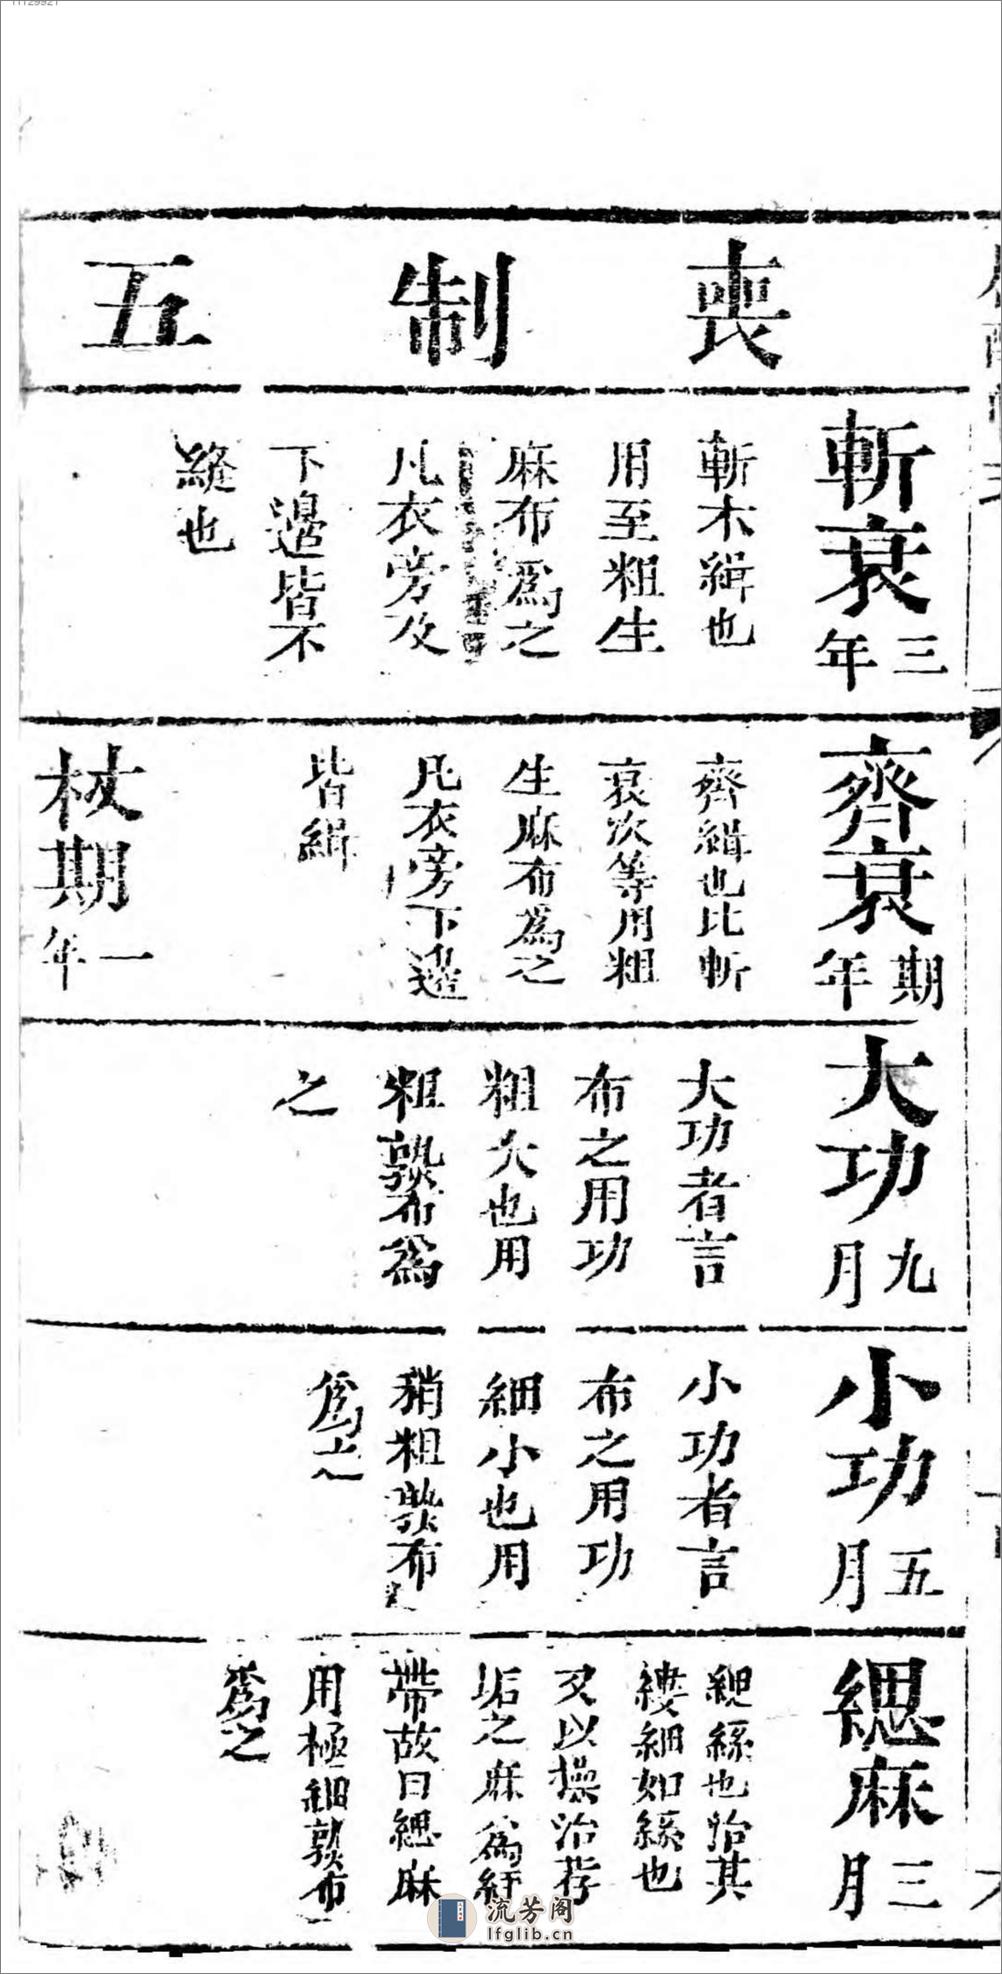 喪制五
斬衰三年
斬不緝也
用至粗生
麻布爲之
凡衣旁及
下邊皆不
縫也
齊衰期年
齊緝也比斬
衰次等用粗
生麻布爲之
凡衣旁下邊
皆緝
杖期一年
大功九月
大功者言
布之用功
粗大也用
粗熟布爲
之
小功五月
小功者言
布之用功
細小也用
稍粗熟布
爲之
緦麻三月
緦絲也治其
縷細如絲也
又以澡治莩
垢之麻爲絰
帶故曰緦麻
用極細熟布
爲之
流芳阁
lfglib.cn